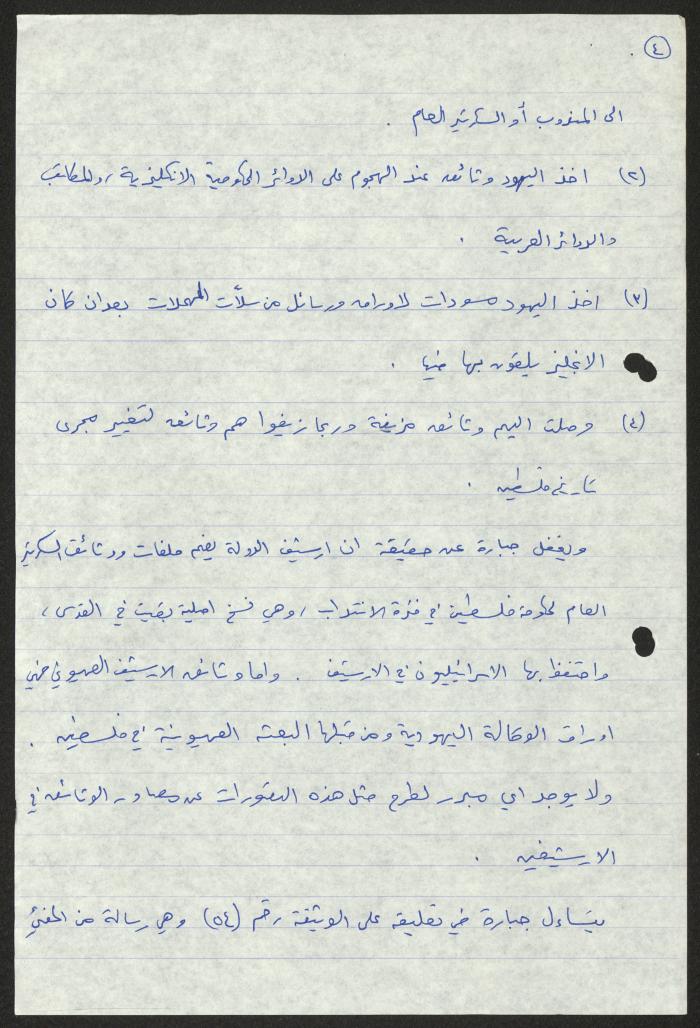 ٤
الى المندوب أو السكرتير العام .
(٢) اخذ اليهود وثائق عند الهجوم على الدوائر الحكومية الانكليزية ، والمكاتب
والدوائر العربية .
(٣) اخذ اليهود مسودات لاوراق ورسائل من سلّات المهملات بعد ان كان
الانجليز يلقون بها فيها .
(٤) وصلت اليهم وثائق مزيفة وربما زيفوا هم وثائق لتغيير مجرى
تاريخ فلسطين .
ويغفل جبارة عن حقيقة ان ارشيف الدولة يضم ملفات ووثائق السكرتير
العام لحكومة فلسطين في فترة الانتداب ، وهي نسخ اصلية بقيت في القدس ،
واحتفظ بها الاسرائيليون في الارشيف . واما وثائق الارشيف الصهيوني فهي
اوراق الوكالة اليهودية ومن قبلها البعثة الصهيونية في فلسطين .
ولا يوجد اي مبرر لطرح مثل هذه التصورات عن مصادر الوثائق في
الارشيفين .
يتساءل جبارة في تعليقه على الوثيقة رقم (٥٤) وهي رسالة من المفتي